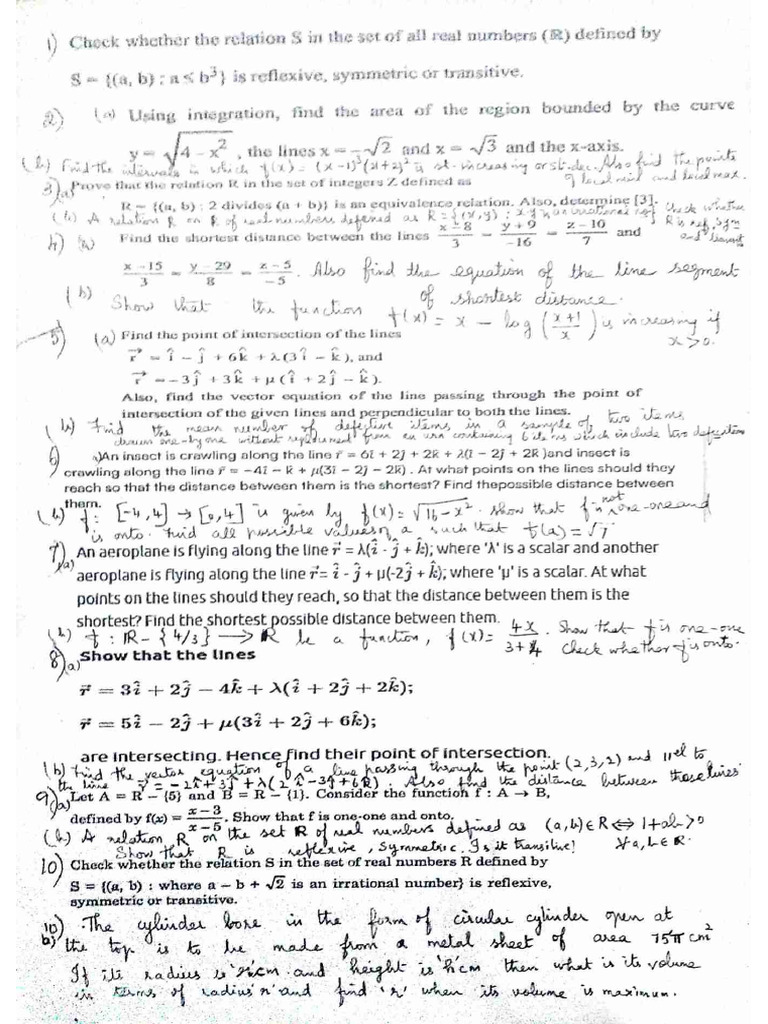 1) Check whether the relation S in the set of all real numbers (ℝ) defined by
S = {(a, b) : a ≤ b³} is reflexive, symmetric or transitive.
2) (a) Using integration, find the area of the region bounded by the curve
y = √(4 – x²), the lines x = –√2 and x = √3 and the x-axis.
(b) Find the intervals in which f(x) = (x-1)³(x+2)² is st. increasing or st. dec. Also find the points
of local min and local max.
3) (a) Prove that the relation R in the set of integers Z defined as
R = {(a, b) : 2 divides (a + b)} is an equivalence relation. Also, determine [3].
(b) A relation R on R of real numbers defined as R = {(x,y) : x.y is an irrational no} Check whether
R is ref, sym and transit
4) (a) Find the shortest distance between the lines (x – 8)/3 = (y + 9)/-16 = (z – 10)/7 and
(x – 15)/3 = (y – 29)/8 = (z – 5)/-5. Also find the equation of the line segment
of shortest distance.
(b) Show that the function f(x) = x – log((x+1)/x) is increasing if
x > 0.
5) (a) Find the point of intersection of the lines
r⃗ = î – ĵ + 6k̂ + λ(3î – k̂), and
r⃗ = –3ĵ + 3k̂ + μ(î + 2ĵ – k̂).
Also, find the vector equation of the line passing through the point of
intersection of the given lines and perpendicular to both the lines.
(b) Find the mean number of defective items in a sample of two items
drawn one-by one without replacement from an urn containing 6 items which include two defective
6) )An insect is crawling along the line r̄ = 6î + 2ĵ + 2k̂ + λ(î – 2ĵ + 2k̂ )and insect is
crawling along the line r̄ = –4î – k̂ + μ(3î – 2ĵ – 2k̂) . At what points on the lines should they
reach so that the distance between them is the shortest? Find thepossible distance between
them.
(b) f: [-4,4] → [0,4] is given by f(x) = √(16 – x²). show that f is not one-one and
is onto. Find all possible values of a such that f(a) = √7
7) (a) An aeroplane is flying along the line r⃗ = λ(î - ĵ + k̂); where 'λ' is a scalar and another
aeroplane is flying along the line r⃗ = î - ĵ + μ(-2ĵ + k̂); where 'μ' is a scalar. At what
points on the lines should they reach, so that the distance between them is the
shortest? Find the shortest possible distance between them.
(b) f : ℝ – {4/3} → ℝ be a function, f(x) = 4x/(3+x4). Show that f is one-one
Check whether f is onto.
8) (a) Show that the lines
r⃗ = 3î + 2ĵ – 4k̂ + λ(î + 2ĵ + 2k̂);
r⃗ = 5î – 2ĵ + μ(3î + 2ĵ + 6k̂);
are intersecting. Hence find their point of intersection.
(b) Find the vector equation of a line passing through the point (2,3,2) and 11el to
the line r⃗ = –2î + 3ĵ + λ(2î – 3ĵ + 6k̂). Also find the distance between these lines
9) (a) Let A = R – {5} and B = R – {1}. Consider the function f : A → B,
defined by f(x) = (x – 3)/(x – 5). Show that f is one-one and onto.
(b) A relation R on the set ℝ of real numbers defined as (a,b) ∈ R ⇔ 1+ab > 0
Show that R is reflexive, symmetric. Is it transitive? ∀ a, b ∈ R.
10) Check whether the relation S in the set of real numbers R defined by
S = {(a, b) : where a – b + √2 is an irrational number} is reflexive,
symmetric or transitive.
10) b) The cylinder bore in the form of circular cylinder open at
the top is to be made from a metal sheet of area 75π cm²
If its radius is 'r' cm and height is 'h' cm then what is its volume
in terms of radius 'r' and find 'r' when its volume is maximum.